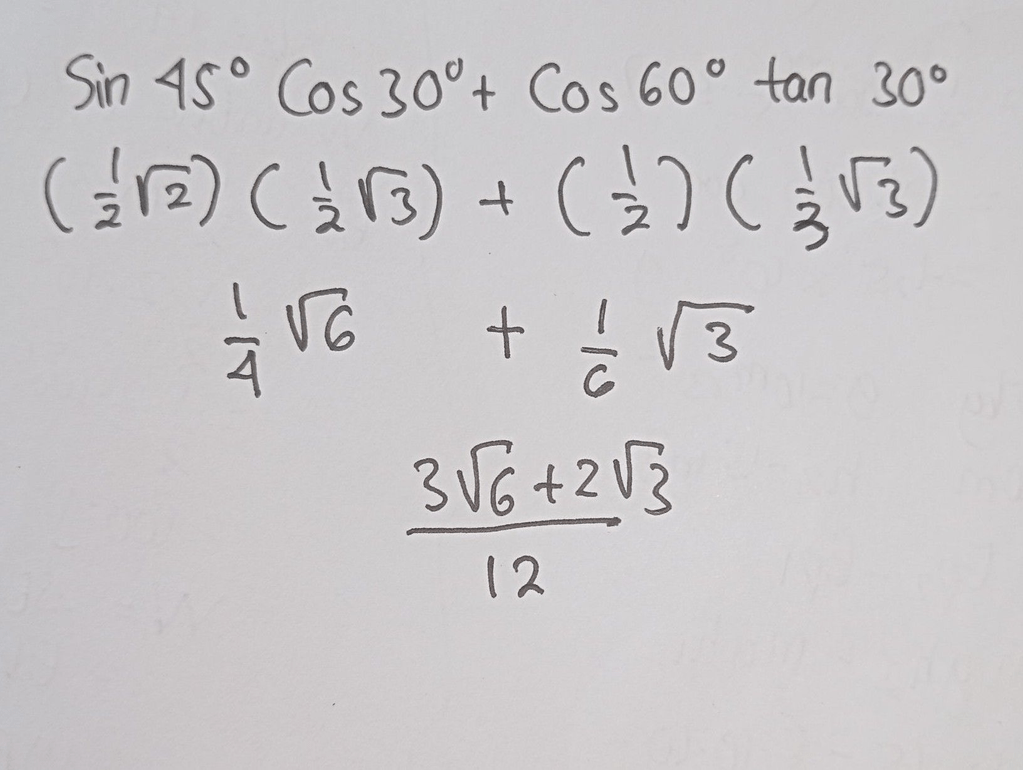 Sin 45° Cos 30° + Cos 60° tan 30°
(1/2 √2) (1/2 √3) + (1/2) (1/3 √3)
1/4 √6 + 1/6 √3
3√6 + 2√3
12